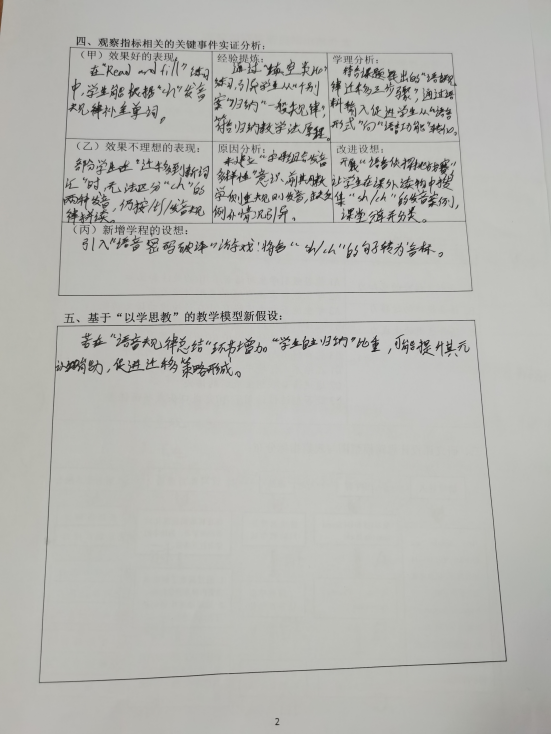 四、观察指标相关的关键事件实证分析：
（甲）效果好的表现：
在"Read and fill"练习
中，学生能根据"ch"发音
规律补全单词。
经验提炼：
通过"填空类比"
练习，引导学生从"个别
案例归纳"一般规律"，
符合归纳教学法原理。
学理分析：
结合课题提出的"语音规
律迁移三步骤"，通过语
料输入促进学生从"语音
形式"向"语言功能"转化。
（乙）效果不理想的表现：
部分学生在"迁移到新词
汇"时，无法区分"ch"的
两种发音，仍按/tʃ/发音规
律拼读。
原因分析：
未建立"字母组合发音
多样性"意识，前期教
学侧重规则发音，缺乏
例外情况引导。
改进设想：
开展"语音侦探挑战赛"
让学生在课外读物中搜
集"sh/ch"的发音案例，
课堂分享并分类。
（丙）新增学程的设想：
引入"语音密码破译"游戏：将含"sh/ch"的句子转为音标。
五、基于"以学思教"的教学模型新假设：
若在"语音规律总结"环节增加"学生自主归纳"比重，可能提升其元
认知能力，促进迁移策略形成。
2